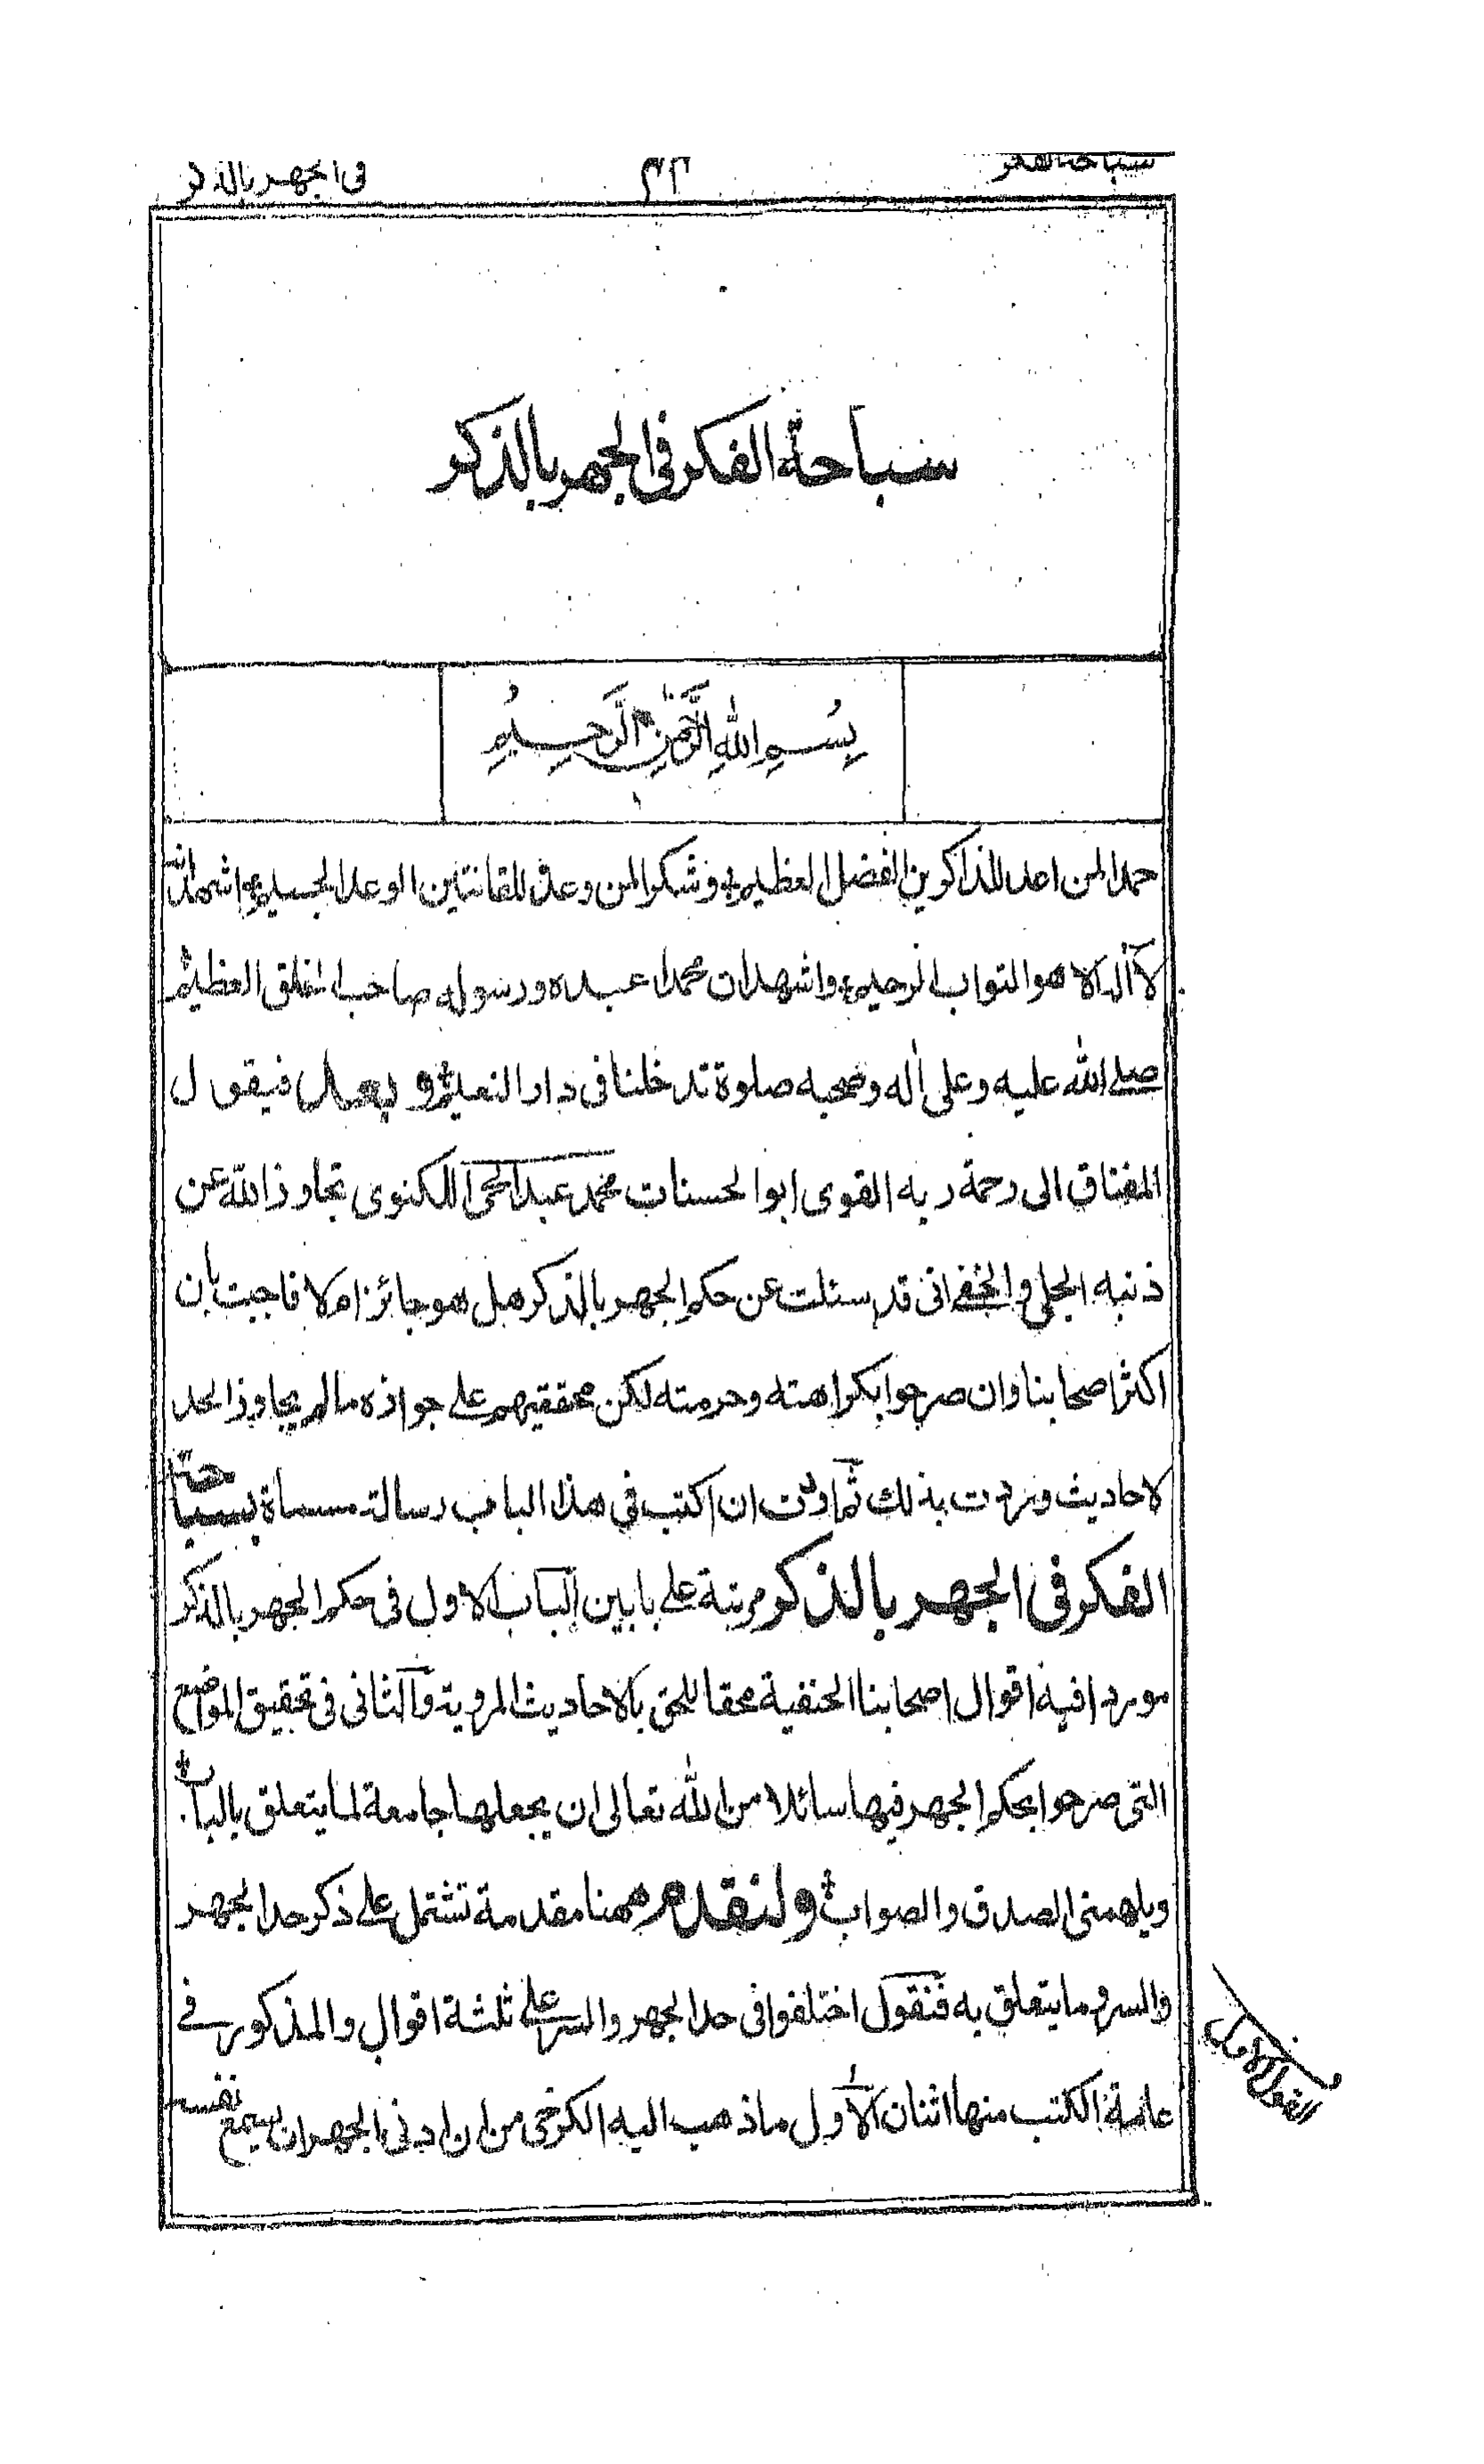 سباحة الفكر ٣٣ فى الجهر بالذكر
سباحة الفكر فى الجهر بالذكر
بِسْمِ اللهِ الرَّحْمٰنِ الرَّحِيْمِ
حمدا لمن اعد للذاكرين الفضل العظيم وشكرا لمن وعد للقانتين الوعد الجسيم واشهد انه
لا اله الا هو التواب الرحيم واشهد ان محمدا عبده ورسوله صاحب الخلق العظيم
صلى الله عليه وعلى اله وصحبه صلوة تدخلنا فى دار النعيم وبعد فيقول
المفتاق الى رحمة ربه القوى ابو الحسنات محمد عبد الحى اللكنوى تجاوز الله عن
ذنبه الجلى والخفى انى قد سئلت عن حكم الجهر بالذكر هل هو جائز ام لا فاجبت بان
اكثر اصحابنا وان صرحوا بكراهته وحرمته لكن محققيهم على جوازه ما لم يجاوز الحد
لاحاديث وردت بذلك ثم اردت ان اكتب فى هذا الباب رسالة مسماة بسباحة
الفكر فى الجهر بالذكر مرتبة على بابين الباب الاول فى حكم الجهر بالذكر
موردا فيه اقوال اصحابنا الحنفية محقا للحق بالاحاديث المروية والثانى فى تحقيق المواضع
التى صرحوا بحكم الجهر فيها سائلا من الله تعالى ان يجعلها جامعة لما يتعلق بالباب
ويلهمنى الصدق والصواب ولنقدم ههنا مقدمة تشتمل على ذكر حد الجهر
والسر وما يتعلق به فنقول اختلفوا فى حد الجهر والسر على ثلثة اقوال والمذكور فى
عامة الكتب منها اثنان الاول ما ذهب اليه الكرخى من ان ادنى الجهر ان يسمع نفسه
القول الاول